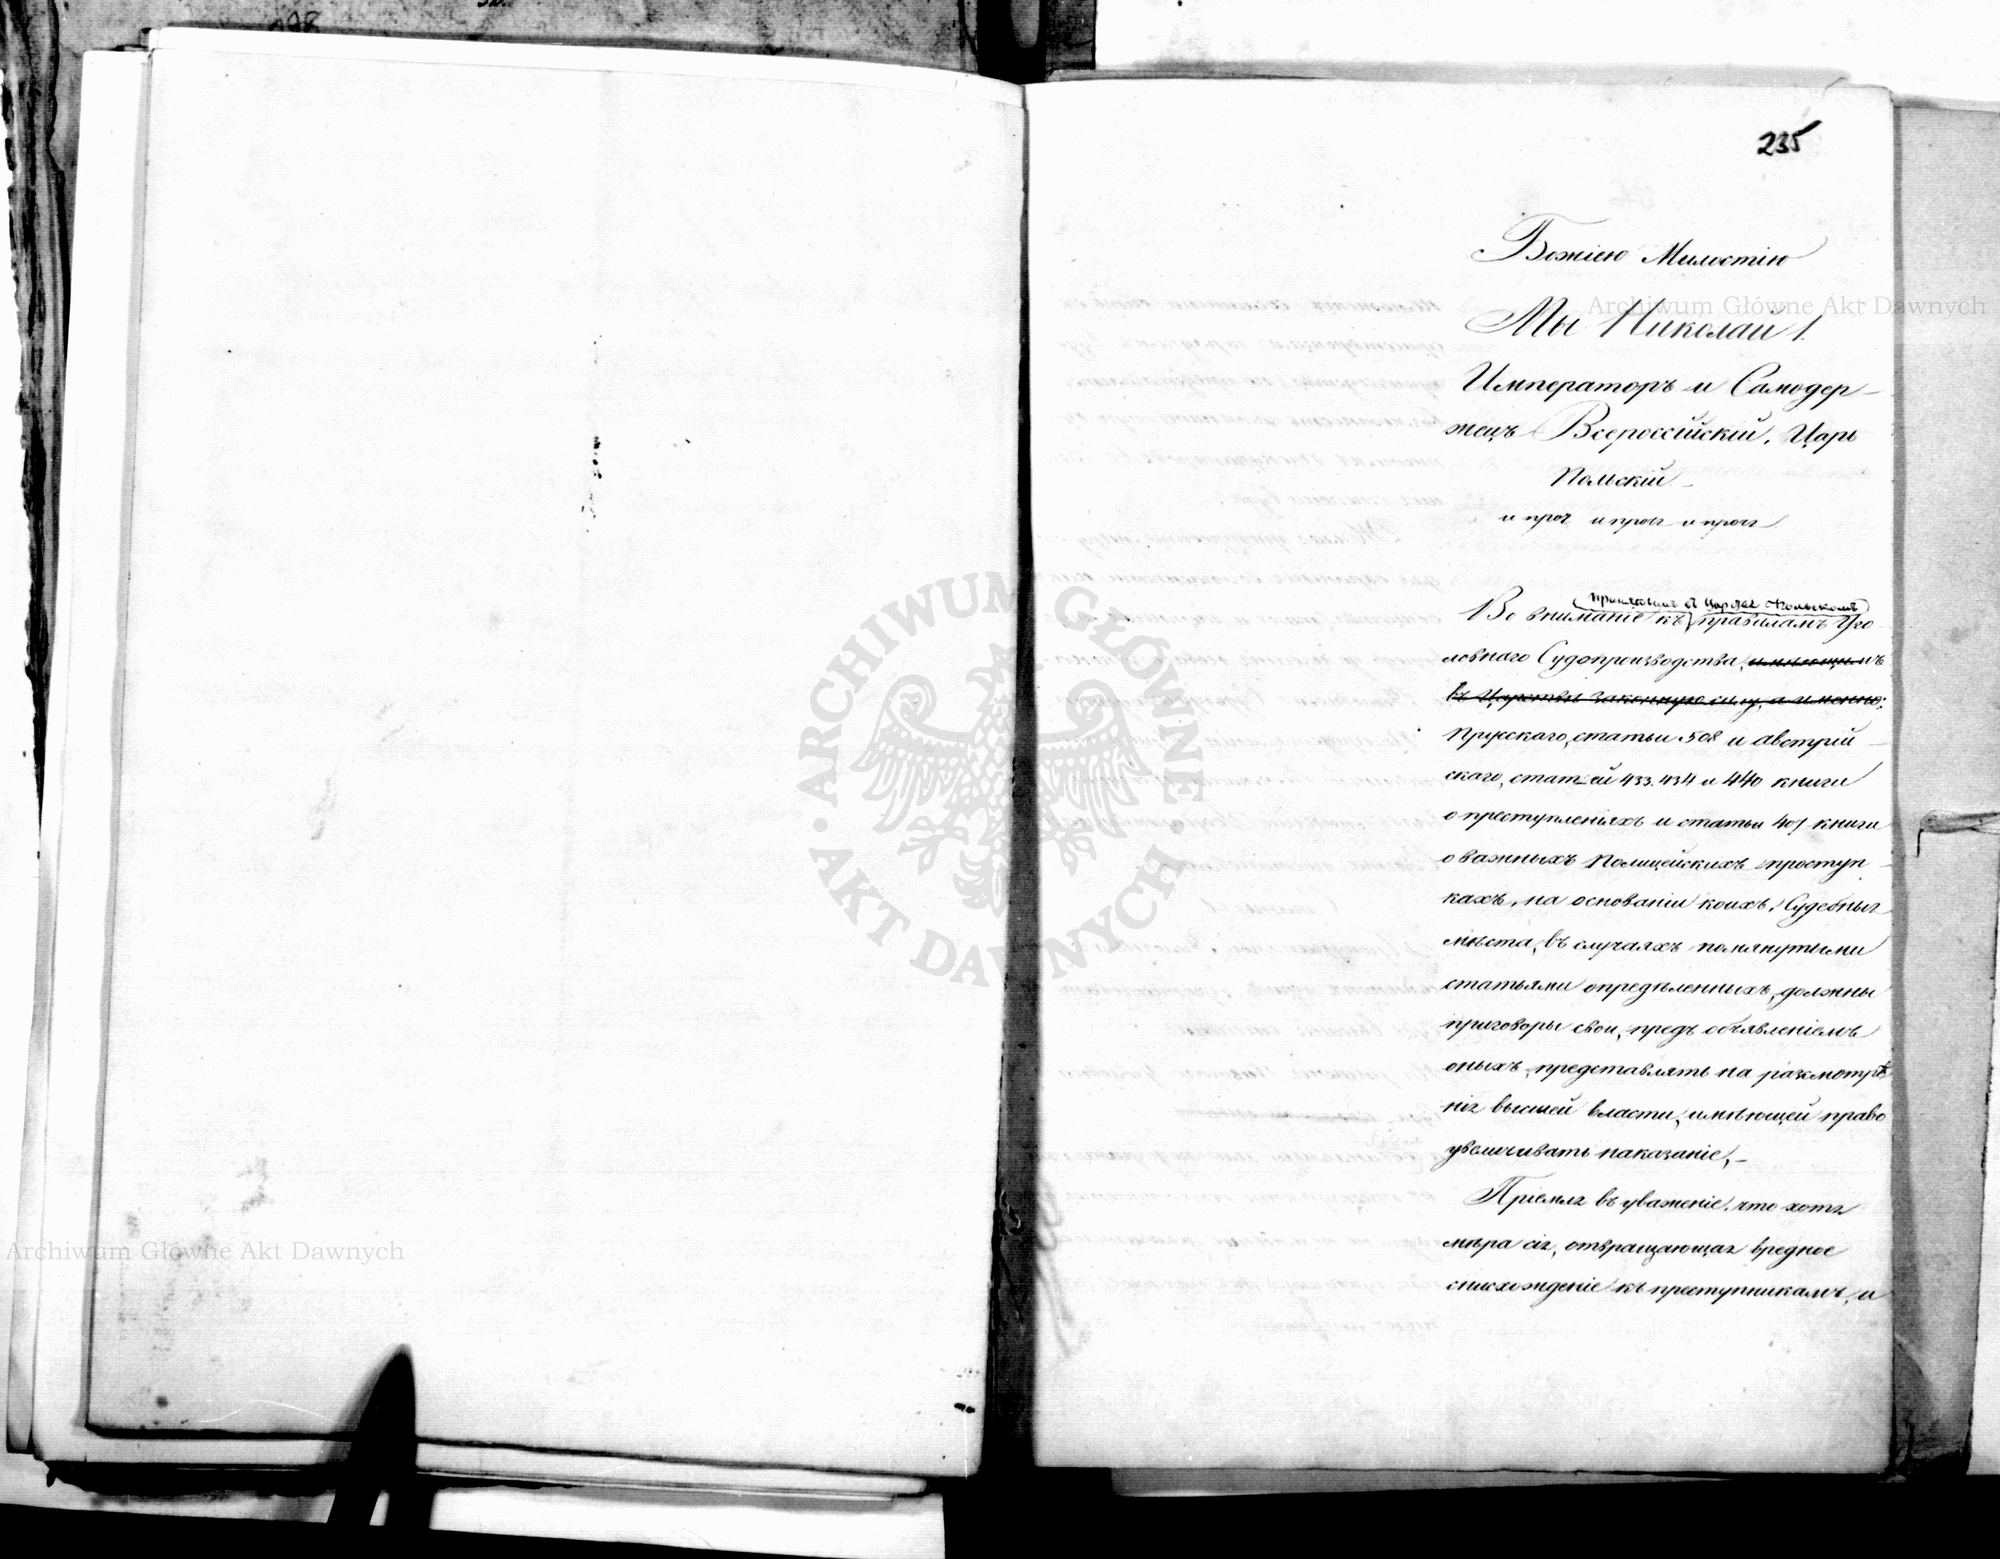 235
Божіею Милостію
Мы Николай I.
Императоръ и Самодер-
жецъ Всероссійскій, Царь
Польскій.
и проч и проч и проч
принятымъ въ Царствѣ Польскомъ
Во вниманіе къ правиламъ Уго
ловнаго Судопроизводства, имѣющимъ
въ Царствѣ законную силу, а именно:
Прусскаго, статьи 508 и австрій-
скаго, статей 433. 434 и 440 книги
о преступленіяхъ и статьи 407 книги
о важныхъ Полицейскихъ проступ-
кахъ, на основаніи коихъ, Судебныя
мѣста, въ случаяхъ помянутыми
статьями опредѣленныхъ, должны
приговоры свои, предъ объявленіемъ
оныхъ, представлять на разсмотрѣ
ніе высшей власти, имѣющей право
увеличивать наказаніе,-
Пріемля въ уваженіе, что хотя
мѣра сія, отвращающая вредное
снисхожденіе къ преступникамъ, и
Archiwum Główne Akt Dawnych
Archiwum Główne Akt Dawnych
ARCHIWUM GŁÓWNE
AKT DAWNYCH